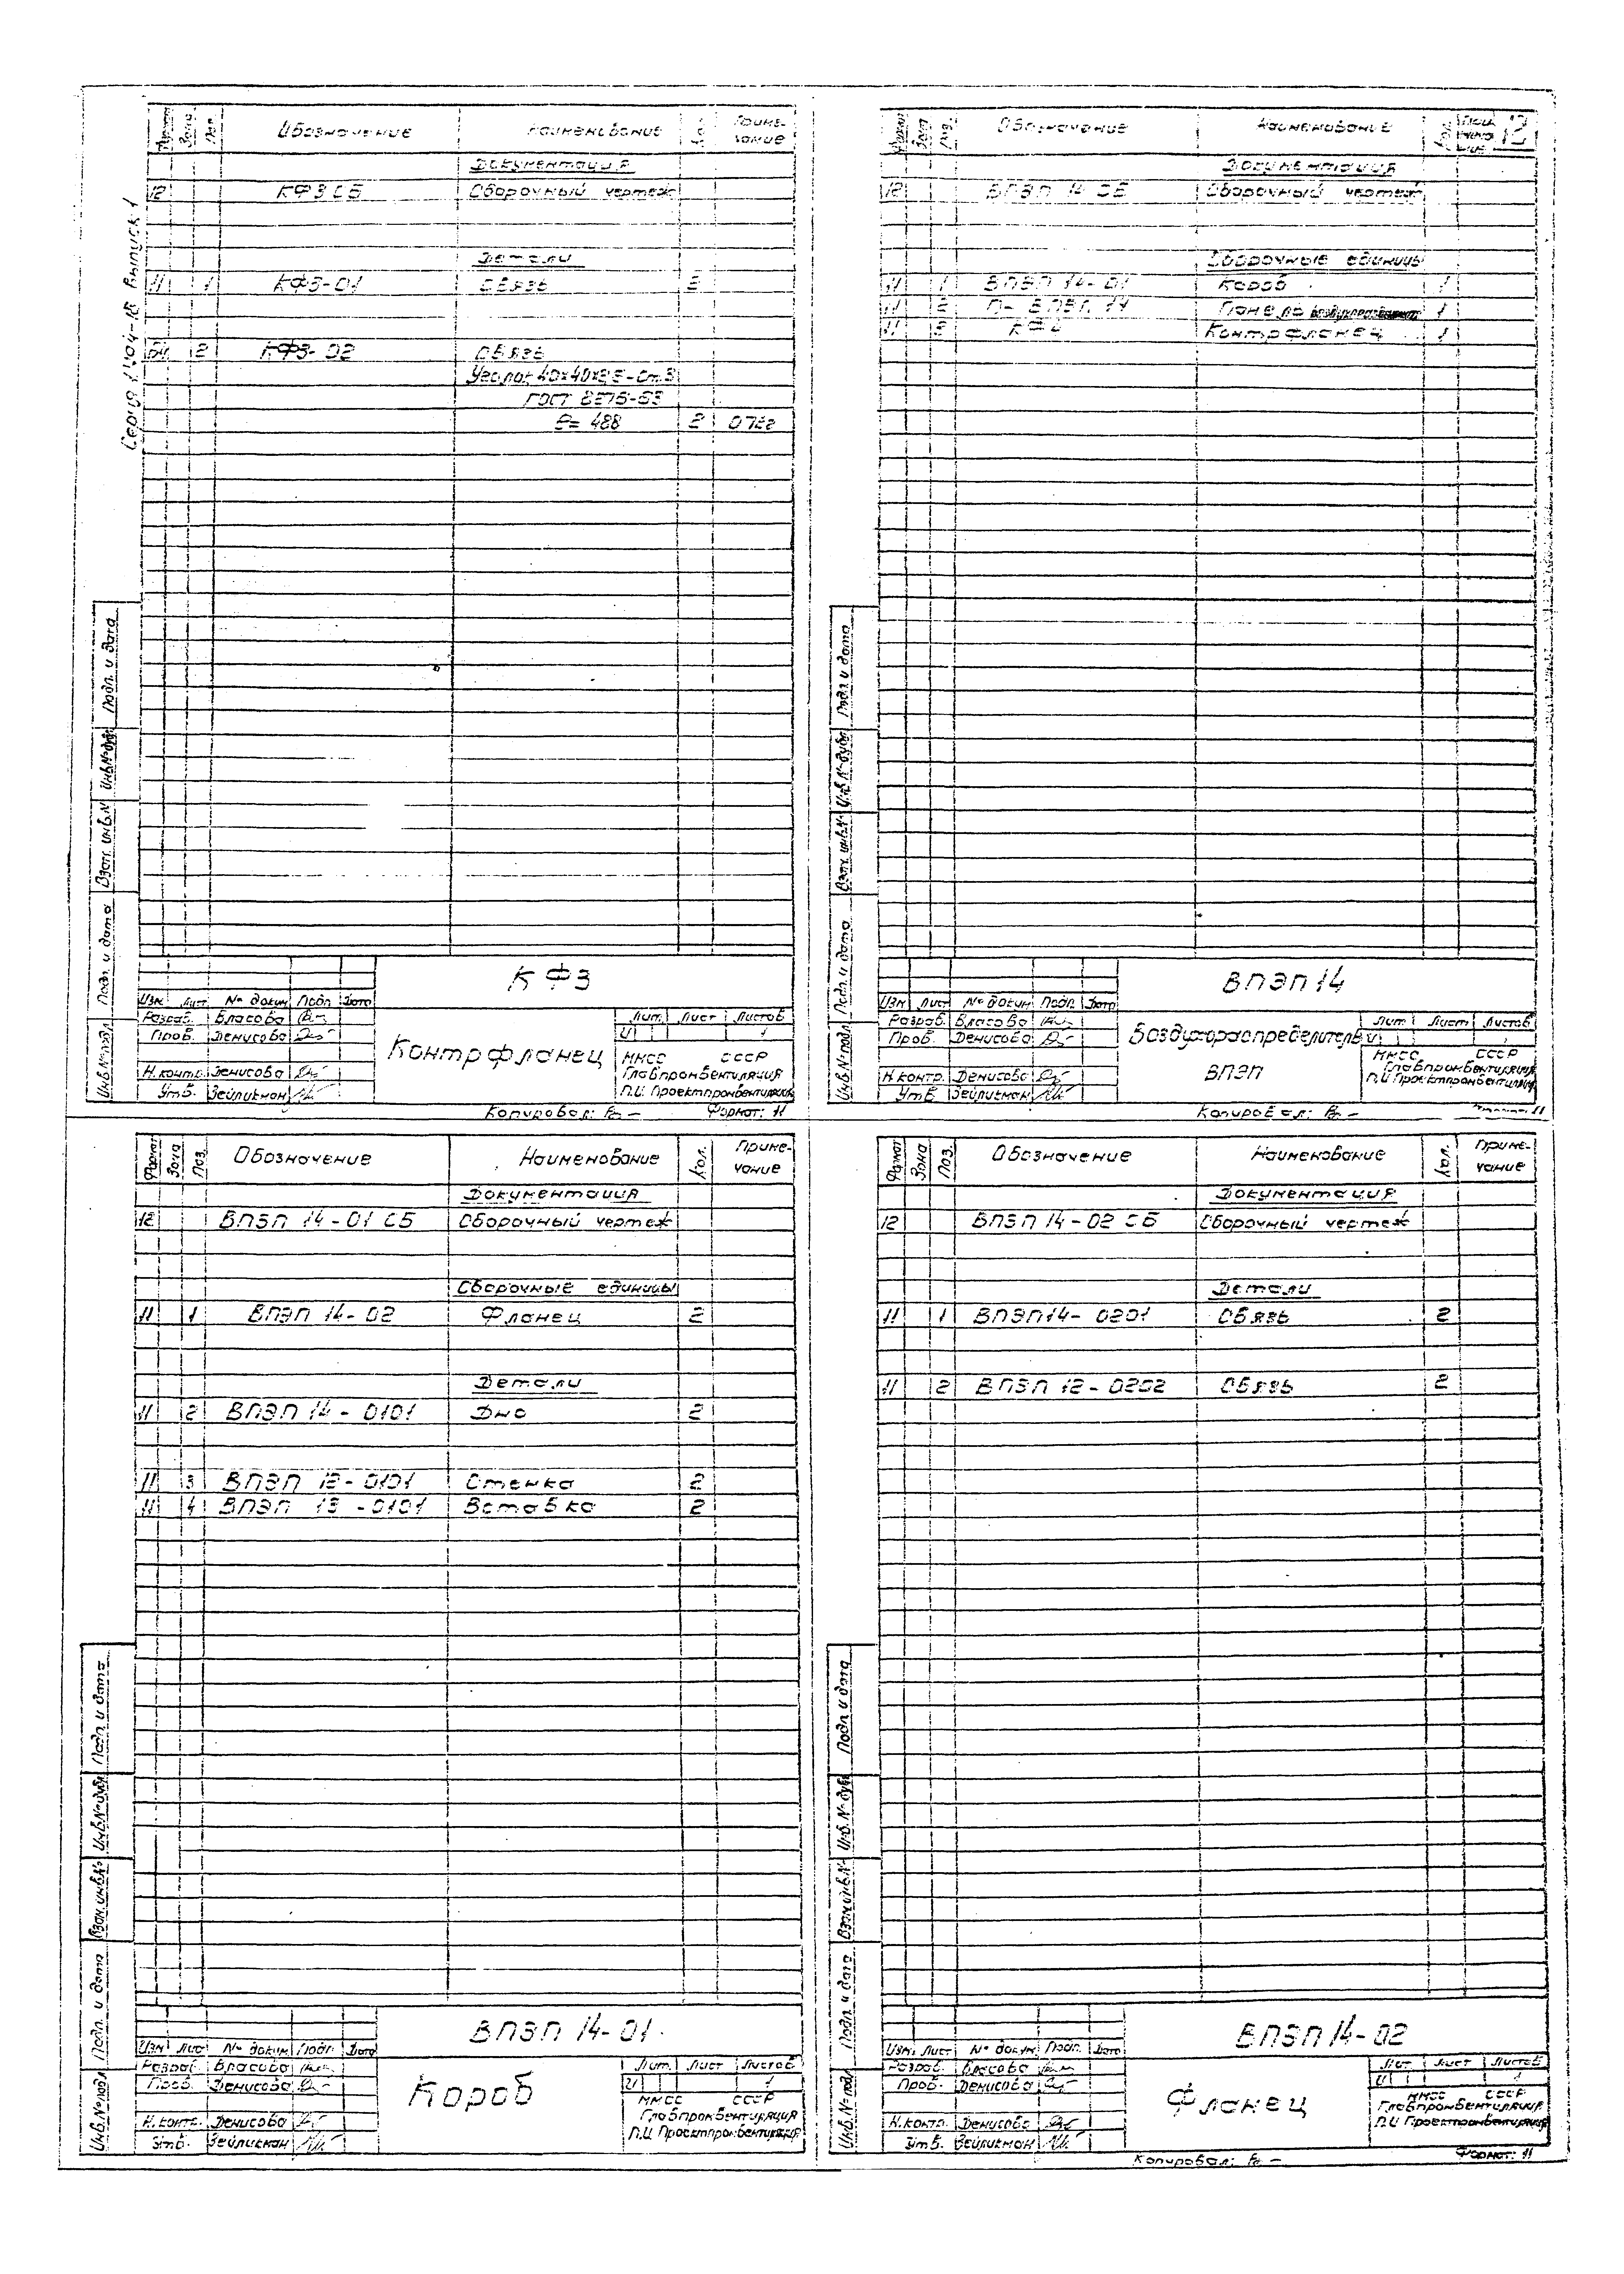 Обозначение Наименование Приме-чание
Документация
12 КФ3 СБ Сборочный чертеж
Детали
11 1 КФ3-01 Обязь 2
БЧ 2 КФ3-02 Обязь
Уголок
ГОСТ
ℓ= 488 2
Серия Выпуск 1
Подп. и дата
Инв.№ дубл
Взам. инв.№
Подп. и дата
Инв.№ подл
КФ3
Изм Лист № докум Подп Дата
Разраб. Власова
Пров. Денисова
Н.контр. Денисова
Утв. Зейликман
Контрфланец
Лит. Лист Листов
И 1
ММСС СССР
Главпромвентиляция
П.И. Проектпромвентиляция
Копировал: Формат: 11
Формат Зона Поз. Обозначение Наименование 12
Документация
12 ВПЭП 14 СБ Сборочный чертеж
Сборочные единицы
11 1 ВПЭП 14-01 Короб 1
11 2 Панель 1
11 3 Контрфланец 1
Подп. и дата
Инв.№ дубл
Взам. инв.№
Подп. и дата
Инв.№ подл
ВПЭП 14
Изм Лист № докум Подп. Дата
Разраб. Власова
Пров. Денисова
Н.контр. Денисова
Утв. Зейликман
Воздухораспределитель
ВПЭП
Лит Лист Листов
И
ММСС СССР
Главпромвентиляция
П.И Проектпромвентиляция
Копировал: 11
Формат Зона Поз. Обозначение Наименование Кол. Приме-чание
Документация
12 ВПЭП 14-01 СБ Сборочный чертеж
Сборочные единицы
11 1 ВПЭП 14-02 Фланец 2
Детали
11 2 ВПЭП 14-0101 Дно 2
11 3 ВПЭП 12-0101 Стенка 2
11 4 ВПЭП 13-0101 Вставка 2
Подп. и дата
Инв.№ дубл
Взам. инв.№
Подп. и дата
Инв.№ подл
ВПЭП 14-01
Изм Лист № докум Подп. Дата
Разраб. Власова
Пров. Денисова
Н.контр. Денисова
Утв. Зейликман
Короб
Лит. Лист Листов
И 1
ММСС СССР
Главпромвентиляция
П.И Проектпромвентиляция
Формат Зона Поз. Обозначение Наименование Кол. Приме-чание
Документация
12 ВПЭП 14-02 СБ Сборочный чертеж
Детали
11 1 ВПЭП14-0201 Обязь 2
11 2 ВПЭП 12-0202 Обязь 2
Подп. и дата
Инв.№ дубл
Взам.инв.№
Подп. и дата
Инв.№ подл
ВПЭП 14-02
Изм. Лист № докум Подп. Дата
Разраб. Власова
Пров. Денисова
Н.контр. Денисова
Утв. Зейликман
Фланец
Лит Лист Листов
И 1
ММСС СССР
Главпромвентиляция
П.И Проектпромвентиляция
Копировал: Формат: 11